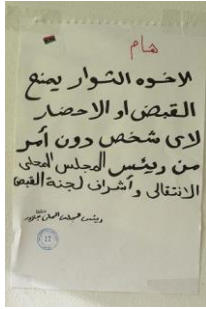 هام
الاخوه الثوار يمنع
القبض او الاحضار
لاى شخص دون أمر
من رئيس المجلس المحلى
الانتقالى وأشراف لجنة القبض
رئيس المجلس المحلى